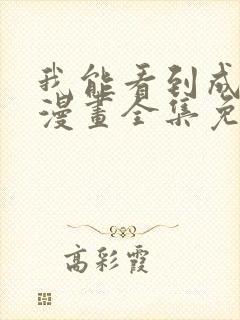 我能看到成
漫畫全集免
高彩霞